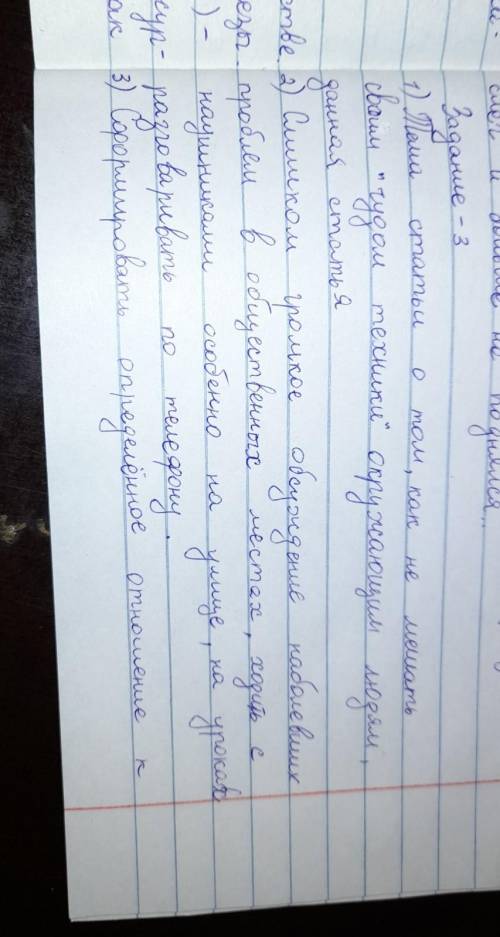 Задание - 3
1) Тема статьи о том, как не мешать
своим "чудом техники" окружающим людям,
данная статья
2) Слишком громкое обсуждение наболевших
проблем в общественных местах, ходить с
наушниками особенно на улице, на уроках
разговаривать по телефону.
3) Сформировать определённое отношение к